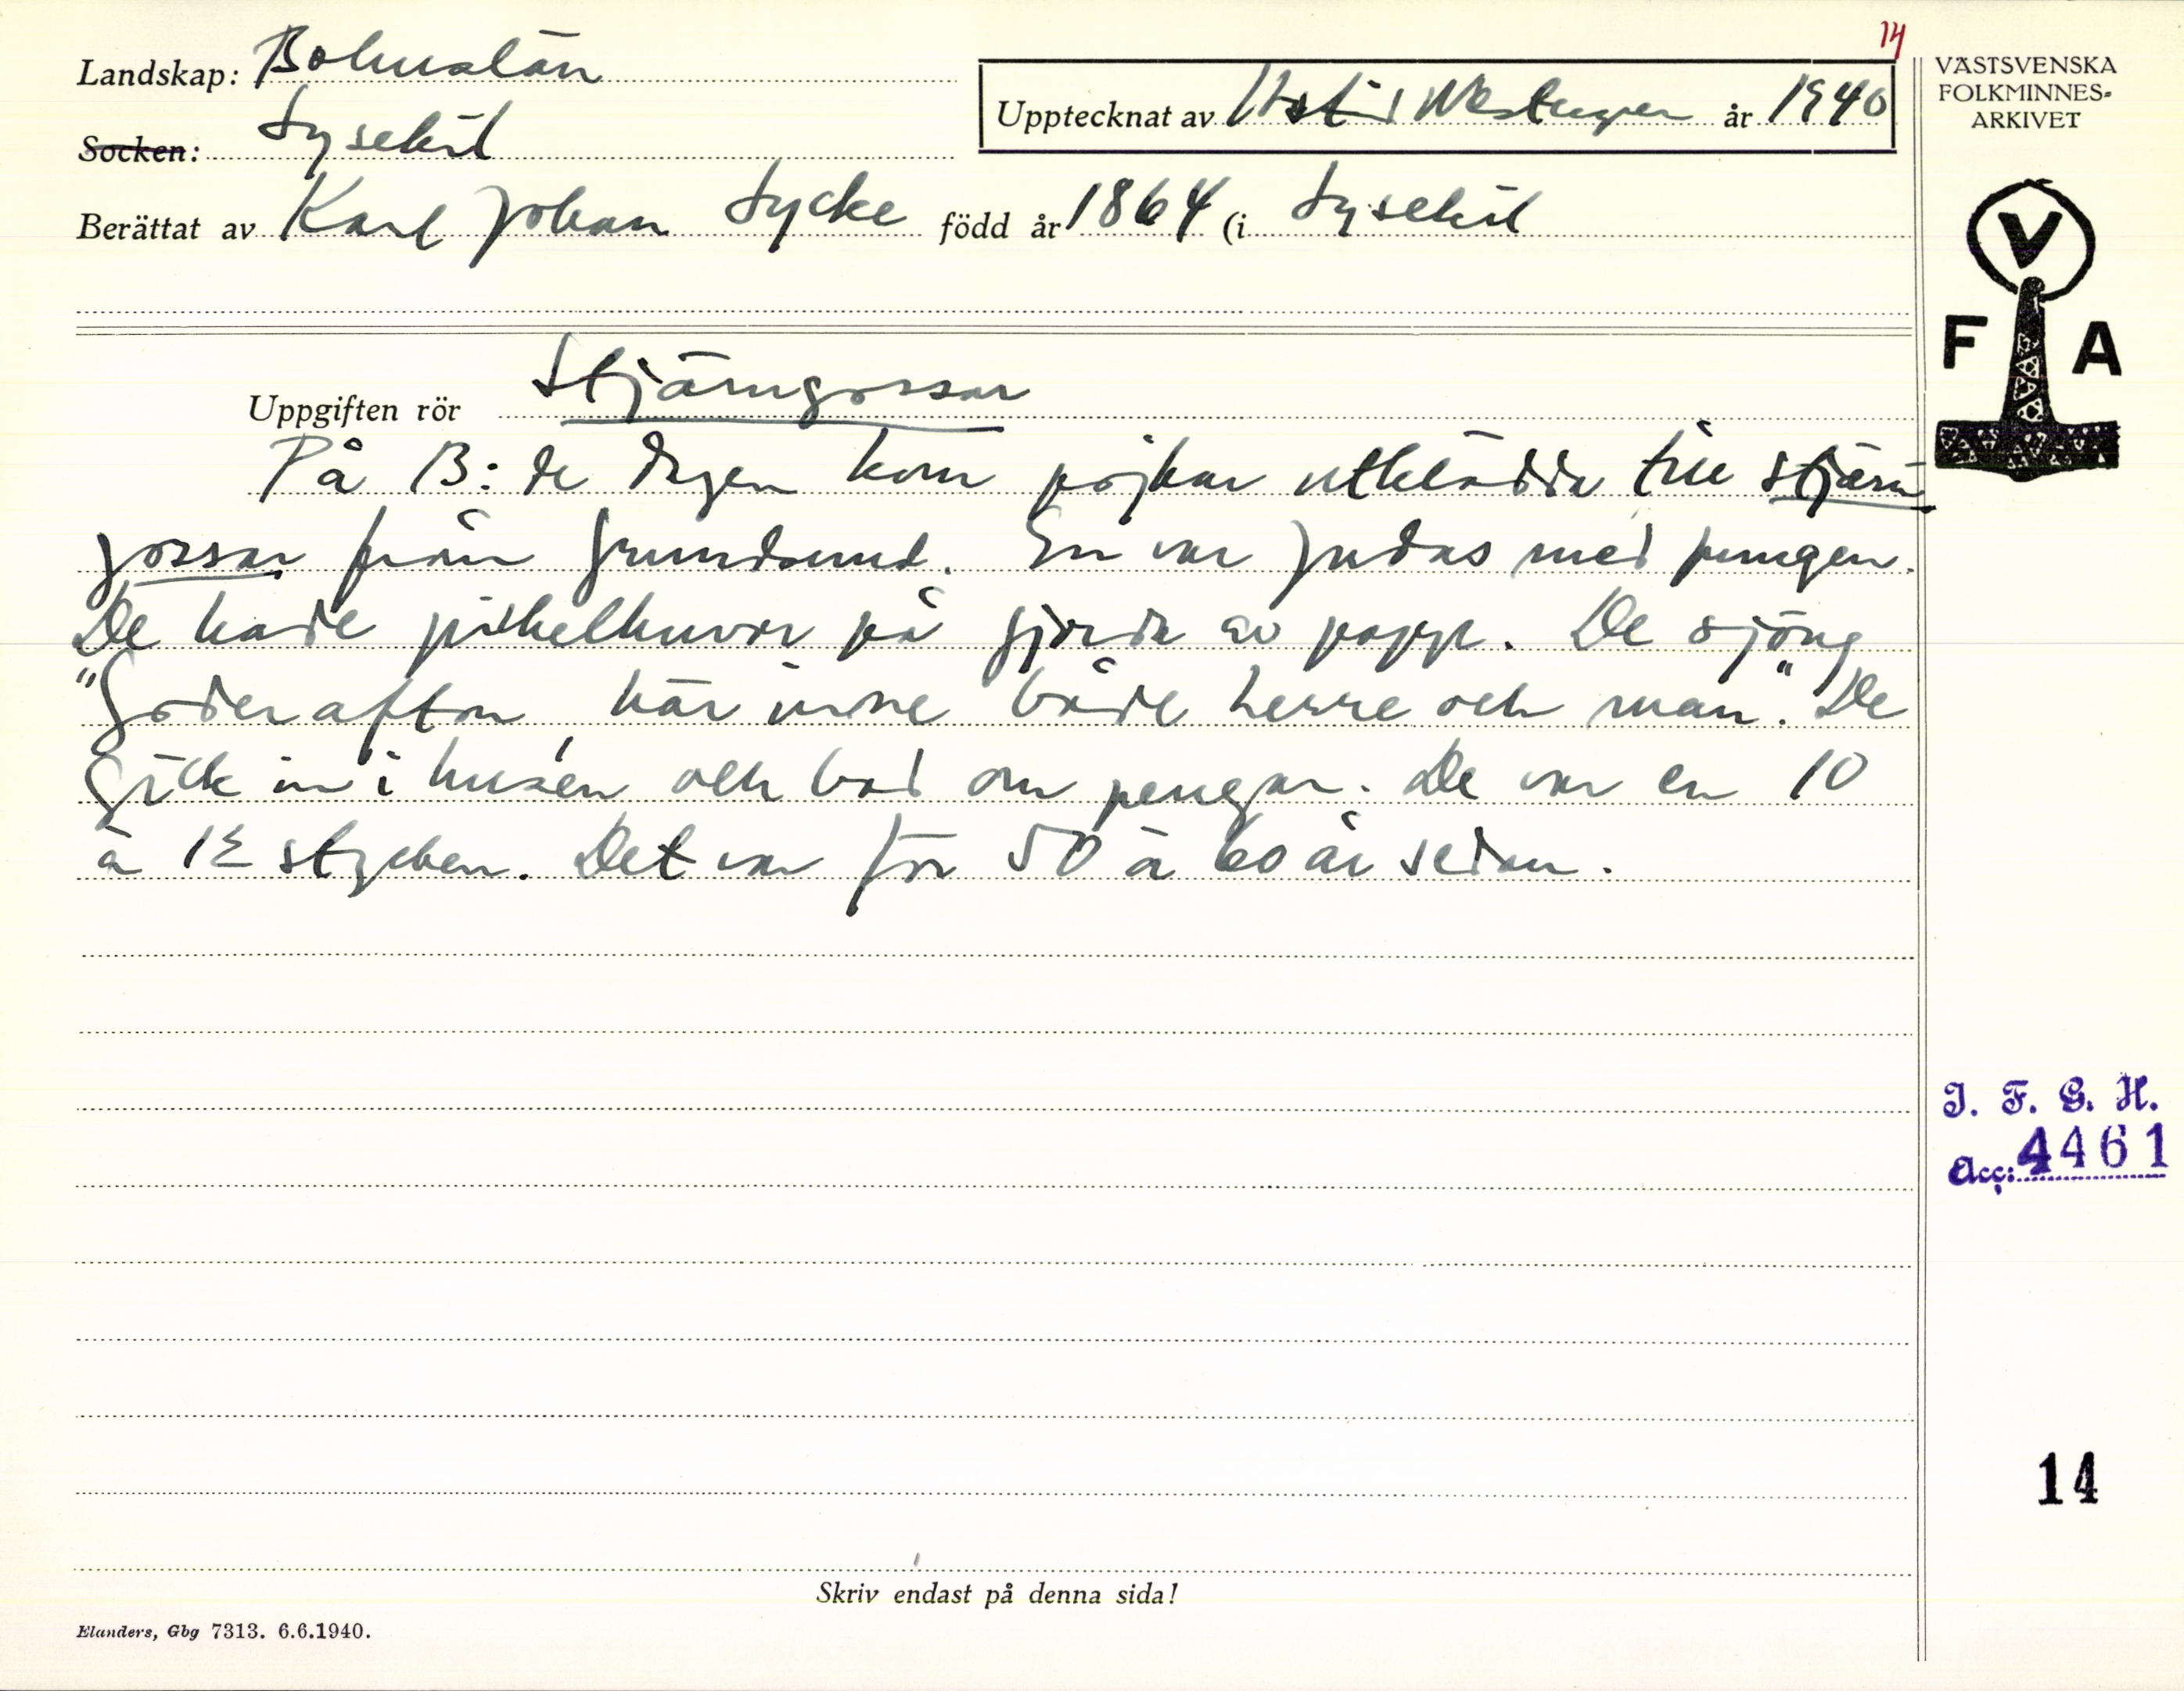 14
Landskap: Bohuslän
Upptecknat av Westergren år 1940
Socken: Lysekil
Berättat av Karl Johan Lycke född år 1864 (i Lysekil
VÄSTSVENSKA
FOLKMINNES-
ARKIVET
V
F A
Uppgiften rör Stjärngossar
På 13:de dagen kom pojkar utklädda till stjärn
gossar från Grundsund. En var Judas med pungen.
De hade pickelhuvor på gjorda av papp. De sjöng
"Goder afton, här inne både herre och man". De
gick in i husen och bad om pengar. De var en 10
à 12 stycken. Det var för 50 à 60 år sedan.
I. F. G. H.
Acc: 4461
14
Skriv endast på denna sida!
Elanders, Gbg 7313. 6.6.1940.